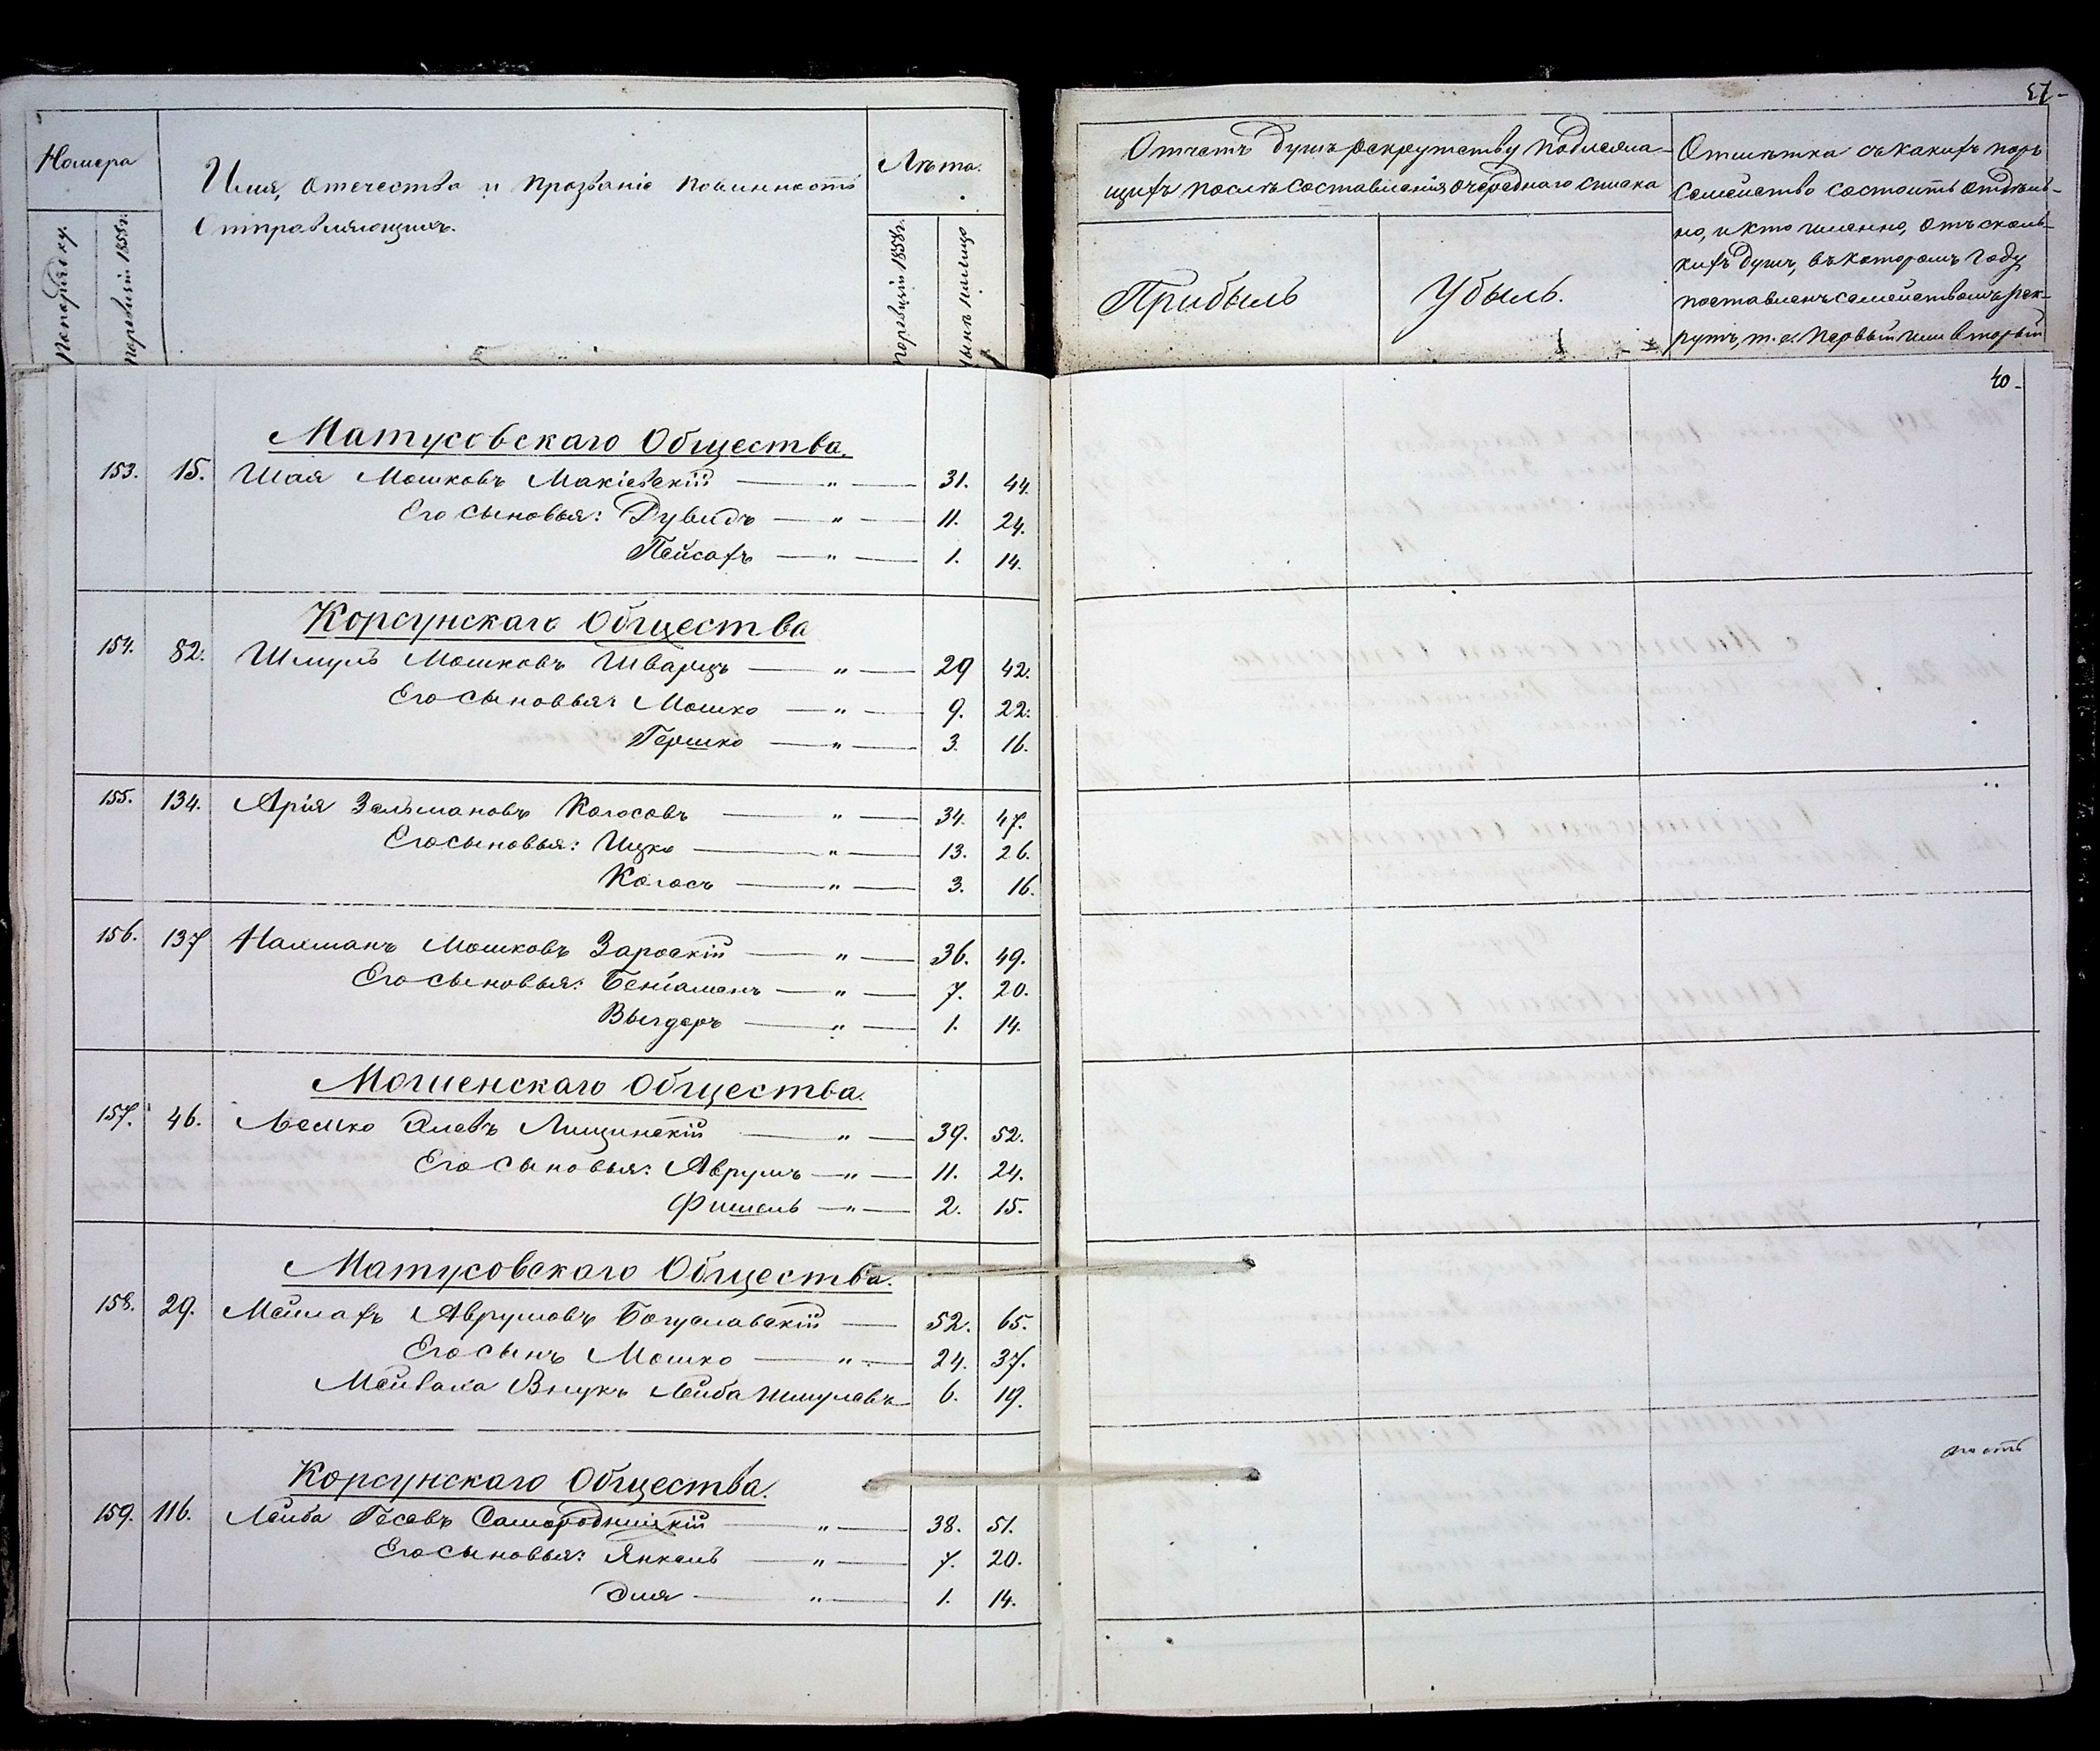 57-
Номера
Имя, отечество и прозваніе повинность
Отправляющихъ.
Лѣта.
По порядку.
По ревизіи 1858г.
По ревизіи 1858г.
Отчетъ душъ рекрутству подлежа-
щихъ послѣ составленія очереднаго списка
Прибыль
Убыль.
Отмѣтка съ какихъ поръ
семейство состоитъ отдѣль-
но, и кто именно, отъ сколь-
кихъ душъ, въ которомъ году
поставленъ семействомъ рек-
рутъ, т. е. первый или вторый
40-
Матусовскаго Общества.
153. 15. Шая Мошковъ Макіевскій — " — 31. 44.
Его сыновья: Дувидъ — " — 11. 24.
Пейсахъ — " — 1. 14.
Корсунскаго Общества
154. 82. Шмуль Мошковъ Шварцъ — " — 29 42.
Его сыновья: Мошко — " — 9. 22.
Гершко — " — 3. 16.
155. 134. Арія Зельмановъ Когосовъ — " — 34. 47.
Его сыновья: Ицко — " — 13. 26.
Когосъ — " — 3. 16.
156. 137 Нахманъ Мошковъ Зароскій — " — 36. 49.
Его сыновья: Беніаменъ — " — 7. 20.
Выгдеръ — " — 1. 14.
Мошенскаго Общества.
157. 46. Лешко Элевъ Лищинскій — " — 39. 52.
Его сыновья: Аврумъ — " — 11. 24.
Фишель — " — 2. 15.
Матусовскаго Общества.
158. 29. Меилахъ Аврумовъ Богуславскій — 52. 65.
Его сынъ Мошко — " — 24. 37.
Внукъ Лейба Шмулевъ 6. 19.
Корсунскаго Общества.
159. 116. Лейба Гесевъ — " — 38. 51.
Его сыновья: Янкель — " — 7. 20.
Эля — " — 1. 14.
ность